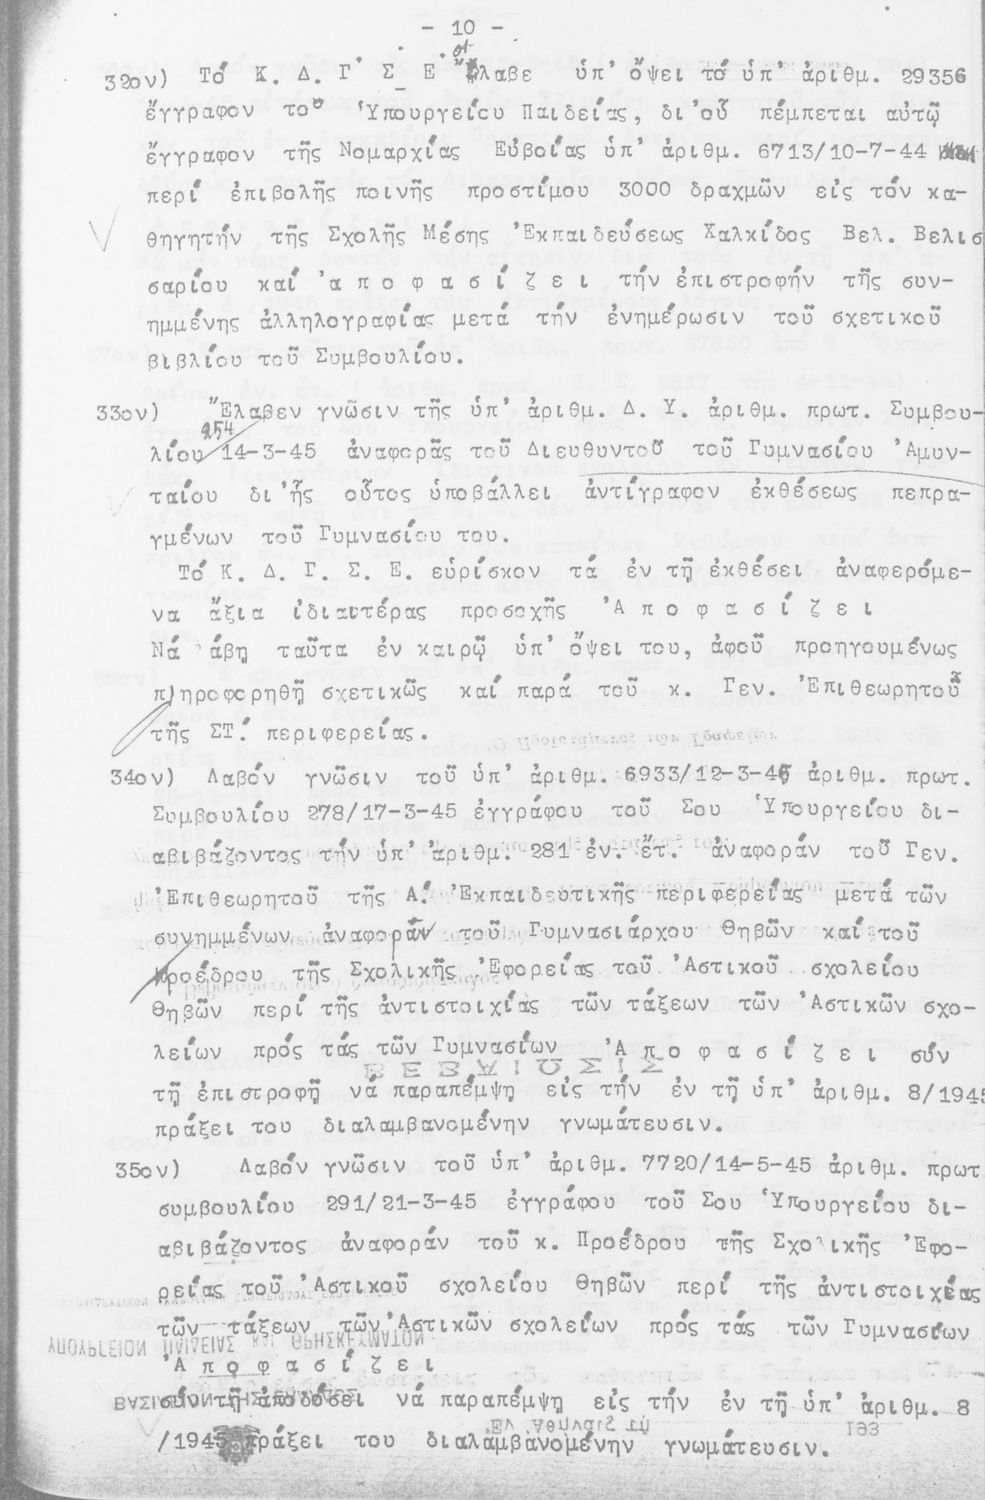 - 10 -
32ον) Τό Κ. Δ. Γ Σ Ε Ἔλαβε ὑπ' ὄψει τό ὑπ' ἀριθμ. 29356
ἔγγραφον τοῦ Ὑπουργείου Παιδείας, δι'οὗ πέμπεται αὐτῷ
ἔγγραφον τῆς Νομαρχίας Εὐβοίας ὑπ' ἀριθμ. 6713/10-7-44
περί ἐπιβολῆς ποινῆς προστίμου 3000 δραχμῶν εἰς τόν κα-
θηγητήν τῆς Σχολῆς Μέσης Ἐκπαιδεύσεως Χαλκίδος Βελ. Βελισ
σαρίου καί ἀ π ο φ α σ ί ζ ε ι τήν ἐπιστροφήν τῆς συν-
ημμένης ἀλληλογραφίας μετά τήν ἐνημέρωσιν τοῦ σχετικοῦ
βιβλίου τοῦ Συμβουλίου.
33ον) Ἔλαβεν γνῶσιν τῆς ὑπ' ἀριθμ. Δ. Υ. ἀριθμ. πρωτ. Συμβου-
254
λίου 14-3-45 ἀναφορᾶς τοῦ Διευθυντοῦ τοῦ Γυμνασίου Ἀμυν-
ταίου δι'ἧς οὗτος ὑποβάλλει ἀντίγραφον ἐκθέσεως πεπρα-
γμένων τοῦ Γυμνασίου του.
Τό Κ. Δ. Γ. Σ. Ε. εὑρίσκον τα ἐν τῇ ἐκθέσει ἀναφερόμε-
να ἄξια ἰδιαιτέρας προσοχῆς Ἀ π ο φ α σ ί ζ ε ι
Νά άβη ταῦτα ἐν καιρῷ ὑπ' ὄψει του, ἀφοῦ προηγουμένως
πληροφορηθῇ σχετικῶς καί παρά τοῦ κ. Γεν. Ἐπιθεωρητοῦ
τῆς ΣΤ. περιφερείας.
34ον) Λαβόν γνῶσιν τοῦ ὑπ' ἀριθμ. 6933/12-3-45 ἀριθμ. πρωτ.
Συμβουλίου 278/17-3-45 ἐγγράφου τοῦ Σου Ὑπουργείου δι-
αβιβάζοντος τήν ὑπ' ἀριθμ. 281 ἐν. ἔτ. ἀναφοράν τοῦ Γεν.
Ἐπιθεωρητοῦ τῆς Α. Ἐκπαιδευτικῆς περιφερείας μετά τῶν
συνημμένων ἀναφορῶν τοῦ Γυμνασιάρχου Θηβῶν καί τοῦ
Προέδρου τῆς Σχολικῆς Ἐφορείας τοῦ Ἀστικοῦ σχολείου
Θηβῶν περί τῆς ἀντιστοιχίας τῶν τάξεων τῶν Ἀστικῶν σχο-
λείων πρός τάς τῶν Γυμνασίων Ἀ π ο φ α σ ί ζ ε ι σύν
τῇ ἐπιστροφῇ νά παραπέμψῃ εἰς τήν ἐν τῇ ὑπ' ἀριθμ. 8/1945
πράξει του διαλαμβανομένην γνωμάτευσιν.
35ον) Λαβόν γνῶσιν τοῦ ὑπ' ἀριθμ. 7720/14-5-45 ἀριθμ. πρωτ
συμβουλίου 291/21-3-45 ἐγγράφου τοῦ Σου Ὑπουργείου δι-
αβιβάζοντος ἀναφοράν τοῦ κ. Προέδρου τῆς Σχολικῆς Ἐφο-
ρείας τοῦ Ἀστικοῦ σχολείου Θηβῶν περί τῆς ἀντιστοιχίας
τῶν τάξεων τῶν Ἀστικῶν σχολείων πρός τάς τῶν Γυμνασίων
Ἀ π ο φ α σ ί ζ ε ι
σύν τῇ ἀποδόσει νά παραπέμψῃ εἰς τήν ἐν τῇ ὑπ' ἀριθμ. 8
/1945 πράξει του διαλαμβανομένην γνωμάτευσιν.